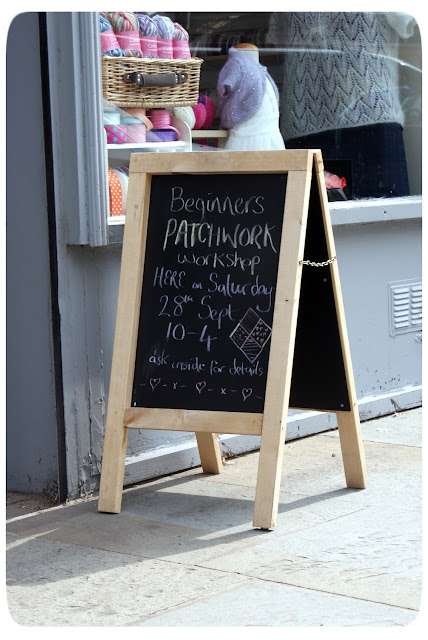 Beginners
PATCHWORK
workshop
HERE on Saturday
28th Sept
10-4
ask inside for details